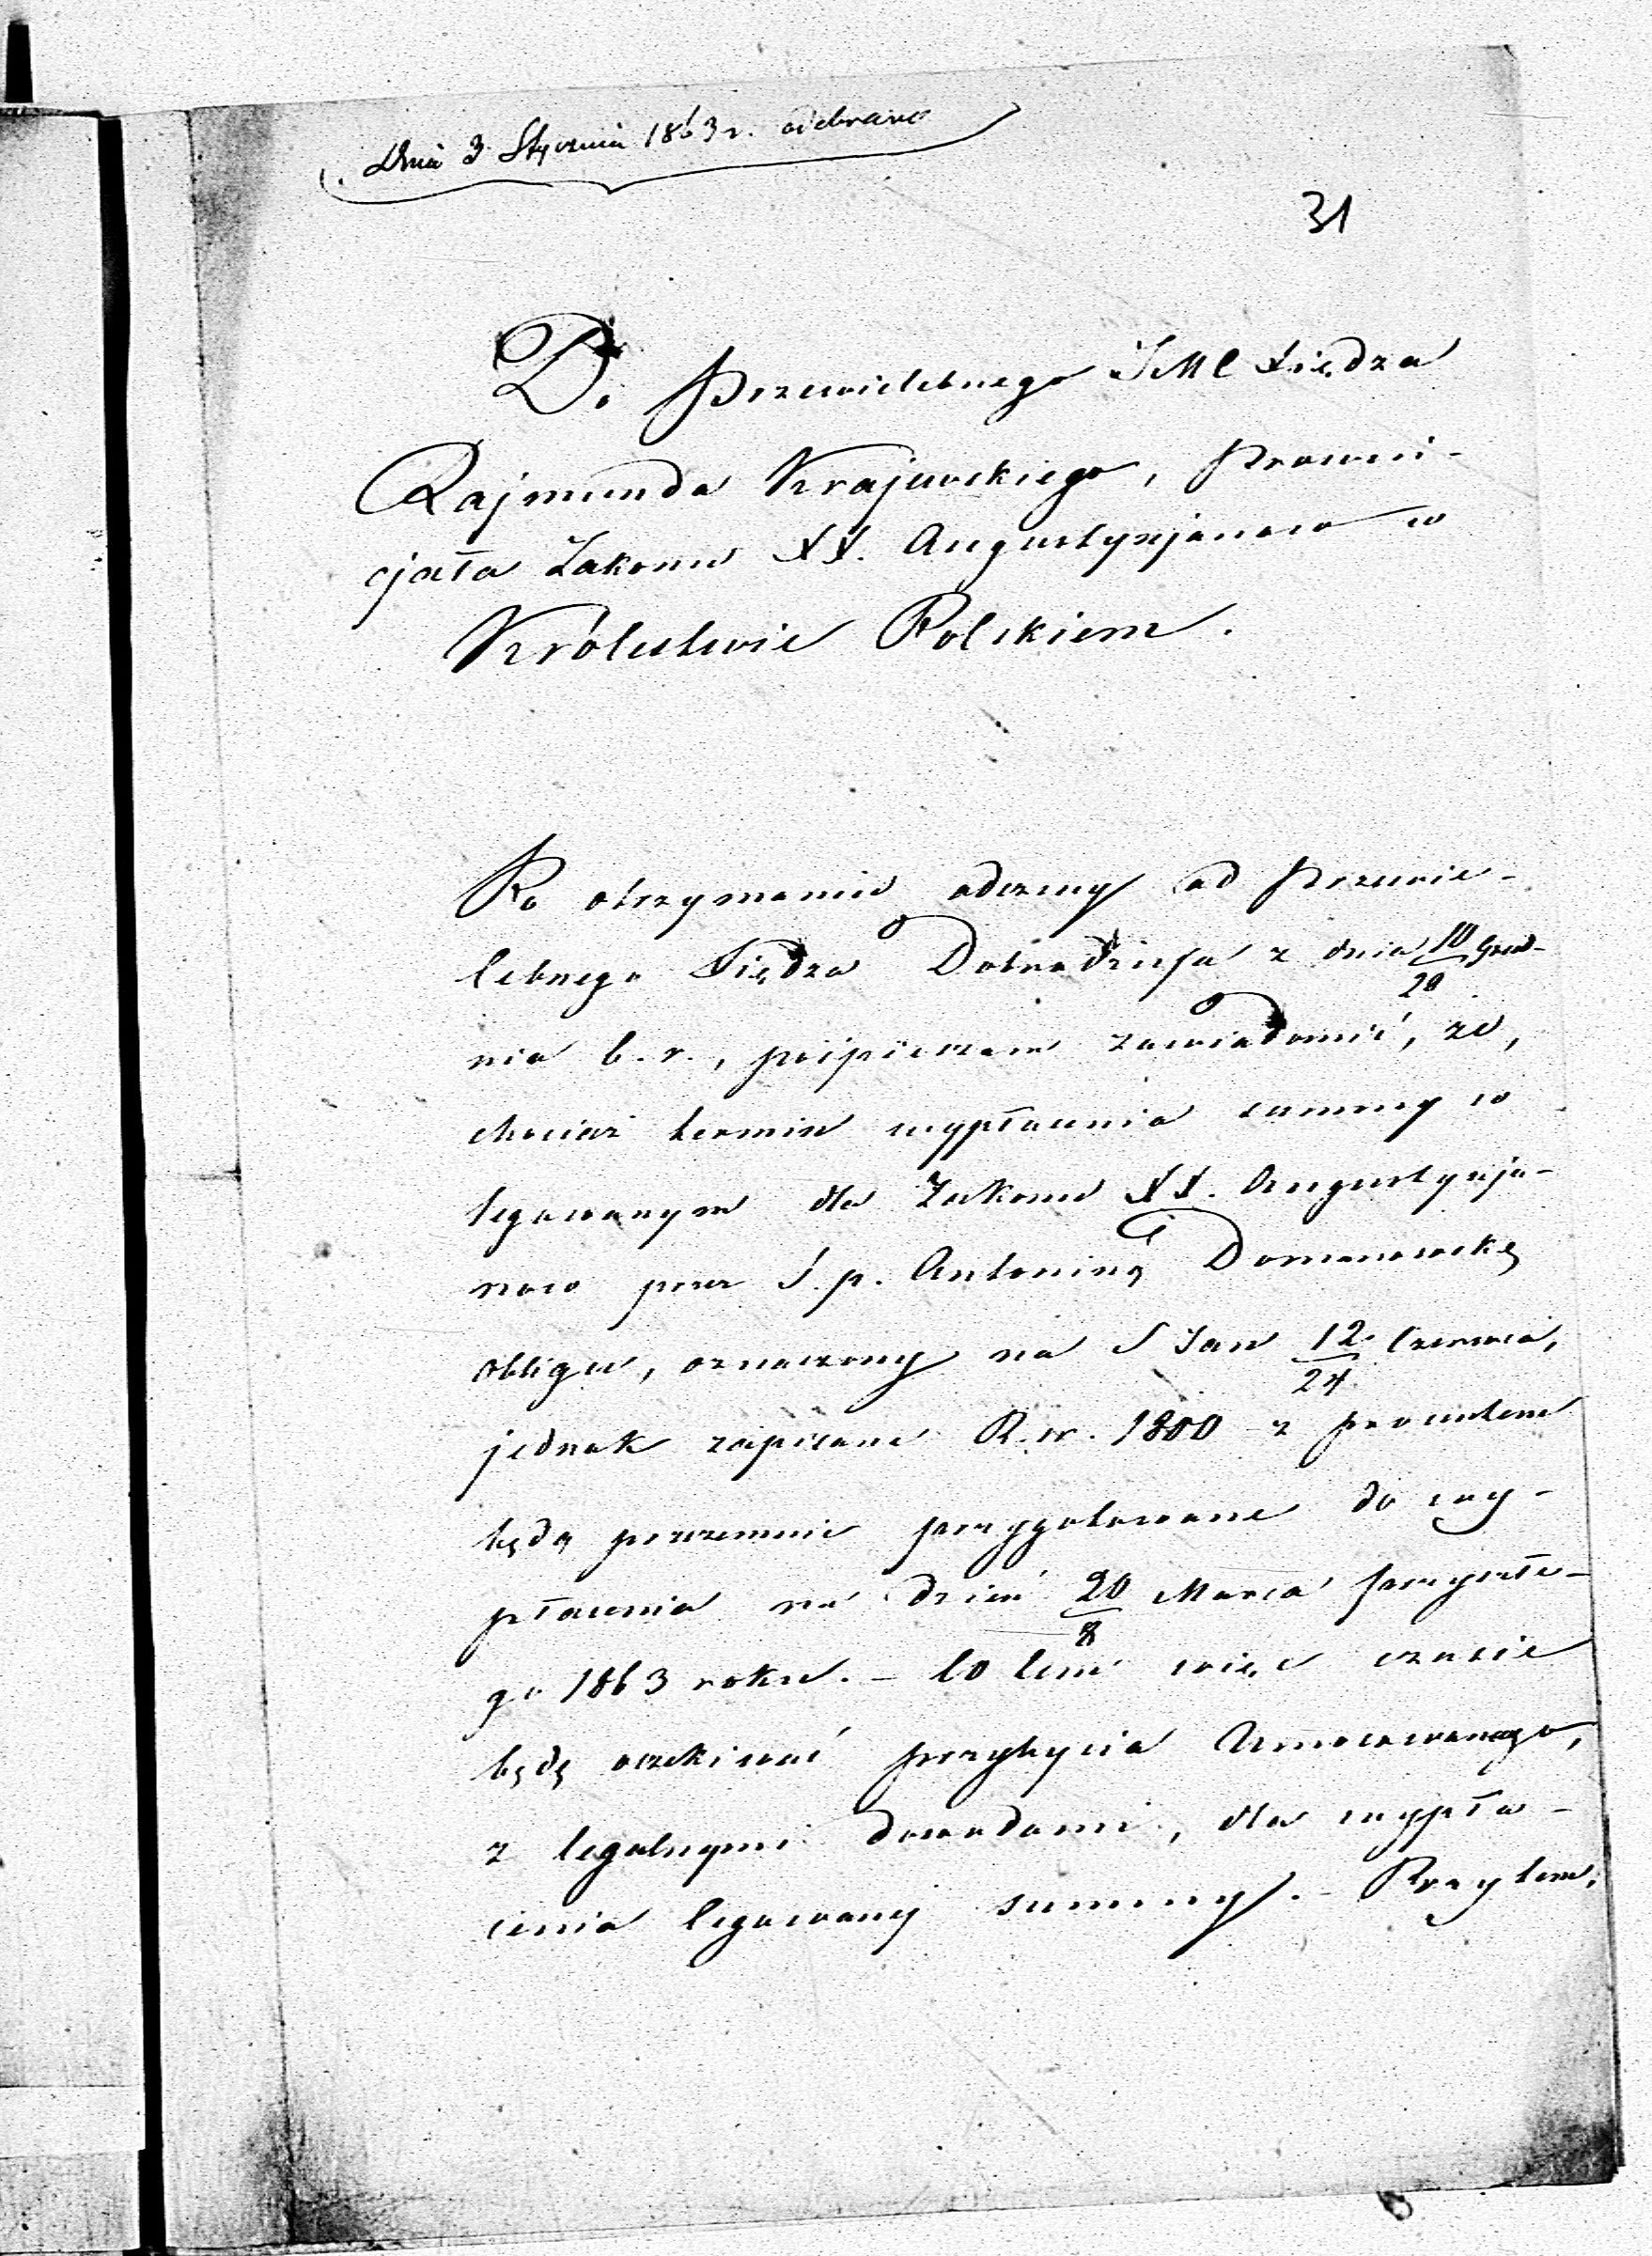 Dnia 3 Stycznia 1863 r. odebrano
31
Do Przewielebnego JMC Xiędza
Rajmunda Krajewskiego, Prowin-
cjała Zakonu XX. Augustyjanow w
Królestwie Polskiem.
Po otrzymaniu odezwy od Przewie-
lebnego Xiędza Dobrodzieja z dnia 10/20 Grud-
nia b. r., pośpieszam zawiadomić, że,
chociaż termin wypłacenia summy w
legowanym dla Zakonu XX. Augustyja-
now przez Ś. p. Antoninę Domanowską
obligu, oznaczony na S Jan 12/24 Czerwca,
jednak zapisane R. sr. 1800 z procentem
będą przezemnie przygotowane do wy-
płacenia na dzień 20/8 Marca przyszłe-
go 1863 roku. – Co tem więc czasie
będę oczekiwać przybycia Umocowanego,
z legalnymi dowodami, dla wypła-
cenia legowanej summy. – Przytem,